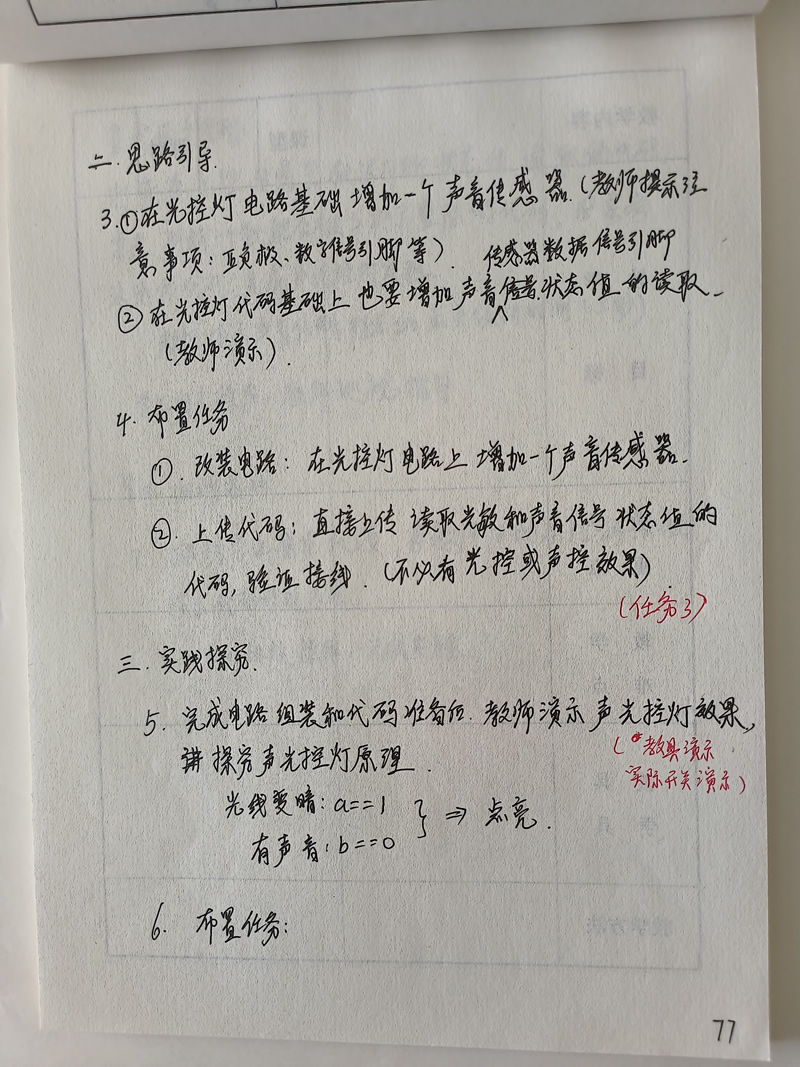 二.思路引导.
3.①在光控灯电路基础增加一个声音传感器.(教师提示注
意事项:正负极、数字信号引脚等).
传感器数据信号引脚
②在光控灯代码基础上也要增加声音信号状态值的读取.
(教师演示).
4.布置任务
①.改装电路:在光控灯电路上增加一个声音传感器.
②.上传代码:直接上传读取光敏和声音信号状态值的
代码,验证接线.(不必有光控或声控效果)
(任务3)
三.实践探究.
5.完成电路组装和代码准备后.教师演示声光控灯效果,
讲探究声光控灯原理.
(教具演示.
实际开关演示)
光线变暗:a==1
有声音:b==0
}⇒点亮.
6.布置任务:
77